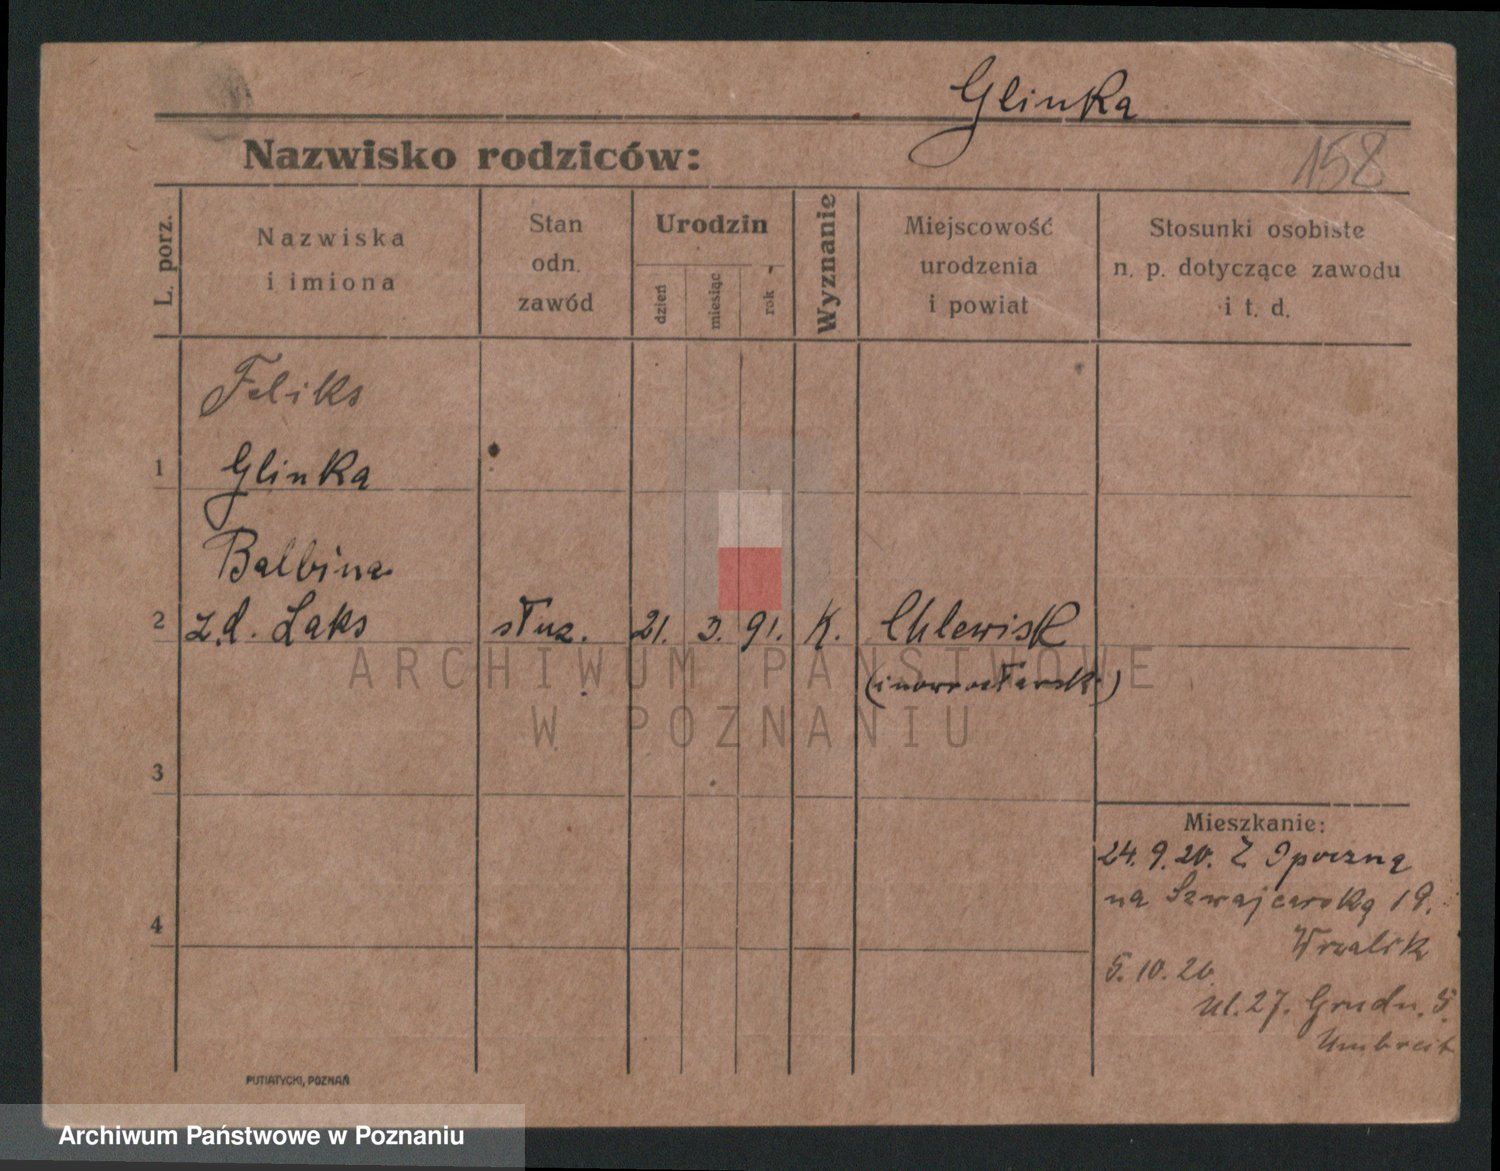 Glinka
158
Nazwisko rodziców:
L. porz.
Nazwiska
i imiona
Stan
odn.
zawód
Urodzin
dzień
miesiąc
rok
Wyznanie
Miejscowość
urodzenia
i powiat
Stosunki osobiste
n. p. dotyczące zawodu
i t. d.
Feliks
1 Glinka
Balbina
2 z.d. Laks słuz. 21. 3. 91. K. Chlewisk
(inowrocławsk.)
3
4
Mieszkanie:
24. 9. 20. Z
na Szwajcarską 19.
Wrzalik
5. 10. 20.
Ul. 27. Grudn. 5.
Umbreit
PUTIATYCKI, POZNAŃ
ARCHIWUM PAŃSTWOWE
W POZNANIU
Archiwum Państwowe w Poznaniu